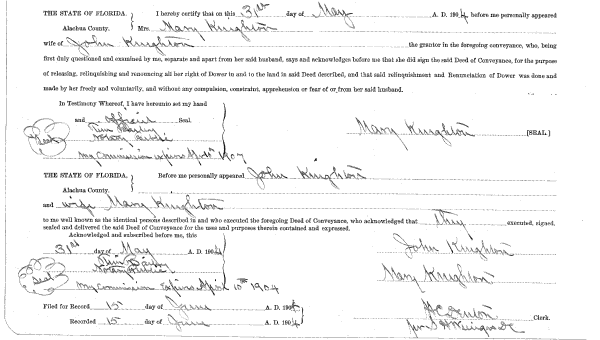 THE STATE OF FLORIDA. } I hereby certify that on this 31st day of May A. D. 1904, before me personally appeared
Alachua County. Mrs. Mary Knighton
wife of John Knighton the grantor in the foregoing conveyance, who, being
first duly questioned and examined by me, separate and apart from her said husband, says and acknowledges before me that she did sign the said Deed of Conveyance, for the purpose
of releasing, relinquishing and renouncing all her right of Dower in and to the land in said Deed described, and that said relinquishment and Renunciation of Dower was done and
made by her freely and voluntarily, and without any compulsion, constraint, apprehension or fear of or from her said husband.
In Testimony Whereof, I have hereunto set my hand
and official Seal
Seal
Notary Public
Mary Knighton [SEAL]
My Commission expires April 1907
THE STATE OF FLORIDA. } Before me personally appeared John Knighton
Alachua County.
and wife Mary Knighton
to me well known as the identical persons described in and who executed the foregoing Deed of Conveyance, who acknowledged that they executed, signed,
sealed and delivered the said Deed of Conveyance for the uses and purposes therein contained and expressed.
Acknowledged and subscribed before me, this
31st day of May A. D. 1904
John Knighton
Seal
Notary Public
Mary Knighton
My Commission Expires April 10th 1904
Filed for Record 15 day of June A. D. 1904
Clerk.
Recorded 15 day of June A. D. 1904